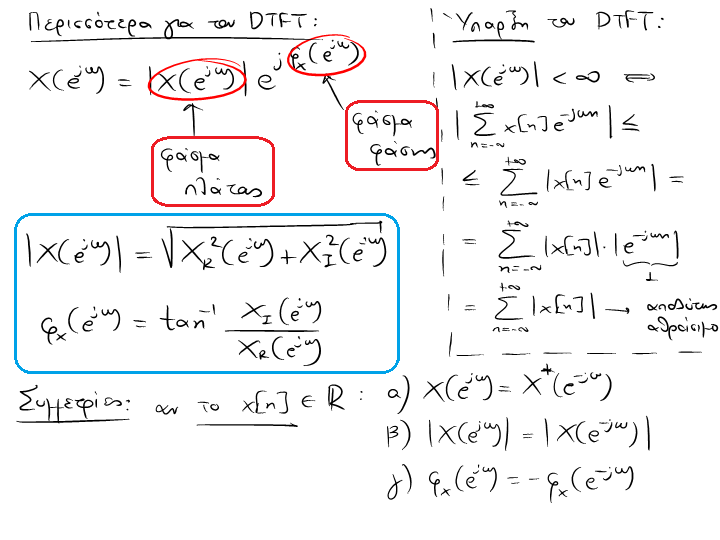 Περισσότερα για τον DTFT:
X(e^{jω}) = |X(e^{jω})| e^{jφ_x(e^{jω})}
φάσμα πλάτους
φάσμα φάσης
|X(e^{jω})| = √(X_R^2(e^{jω}) + X_I^2(e^{jω}))
φ_x(e^{jω}) = tan^{-1} X_I(e^{jω}) / X_R(e^{jω})
Ύπαρξη του DTFT:
|X(e^{jω})| < ∞ ⟺
|∑_{n=-∞}^{+∞} x[n] e^{-jωn}| ≤
≤ ∑_{n=-∞}^{+∞} |x[n] e^{-jωn}| =
= ∑_{n=-∞}^{+∞} |x[n]|·|e^{-jωn}|
1
= ∑_{n=-∞}^{+∞} |x[n]| → απολύτως
αθροίσιμο
Συμμετρίες: αν το x[n] ∈ ℝ: α) X(e^{jω}) = X^*(e^{-jω})
β) |X(e^{jω})| = |X(e^{-jω})|
γ) φ_x(e^{jω}) = -φ_x(e^{-jω})